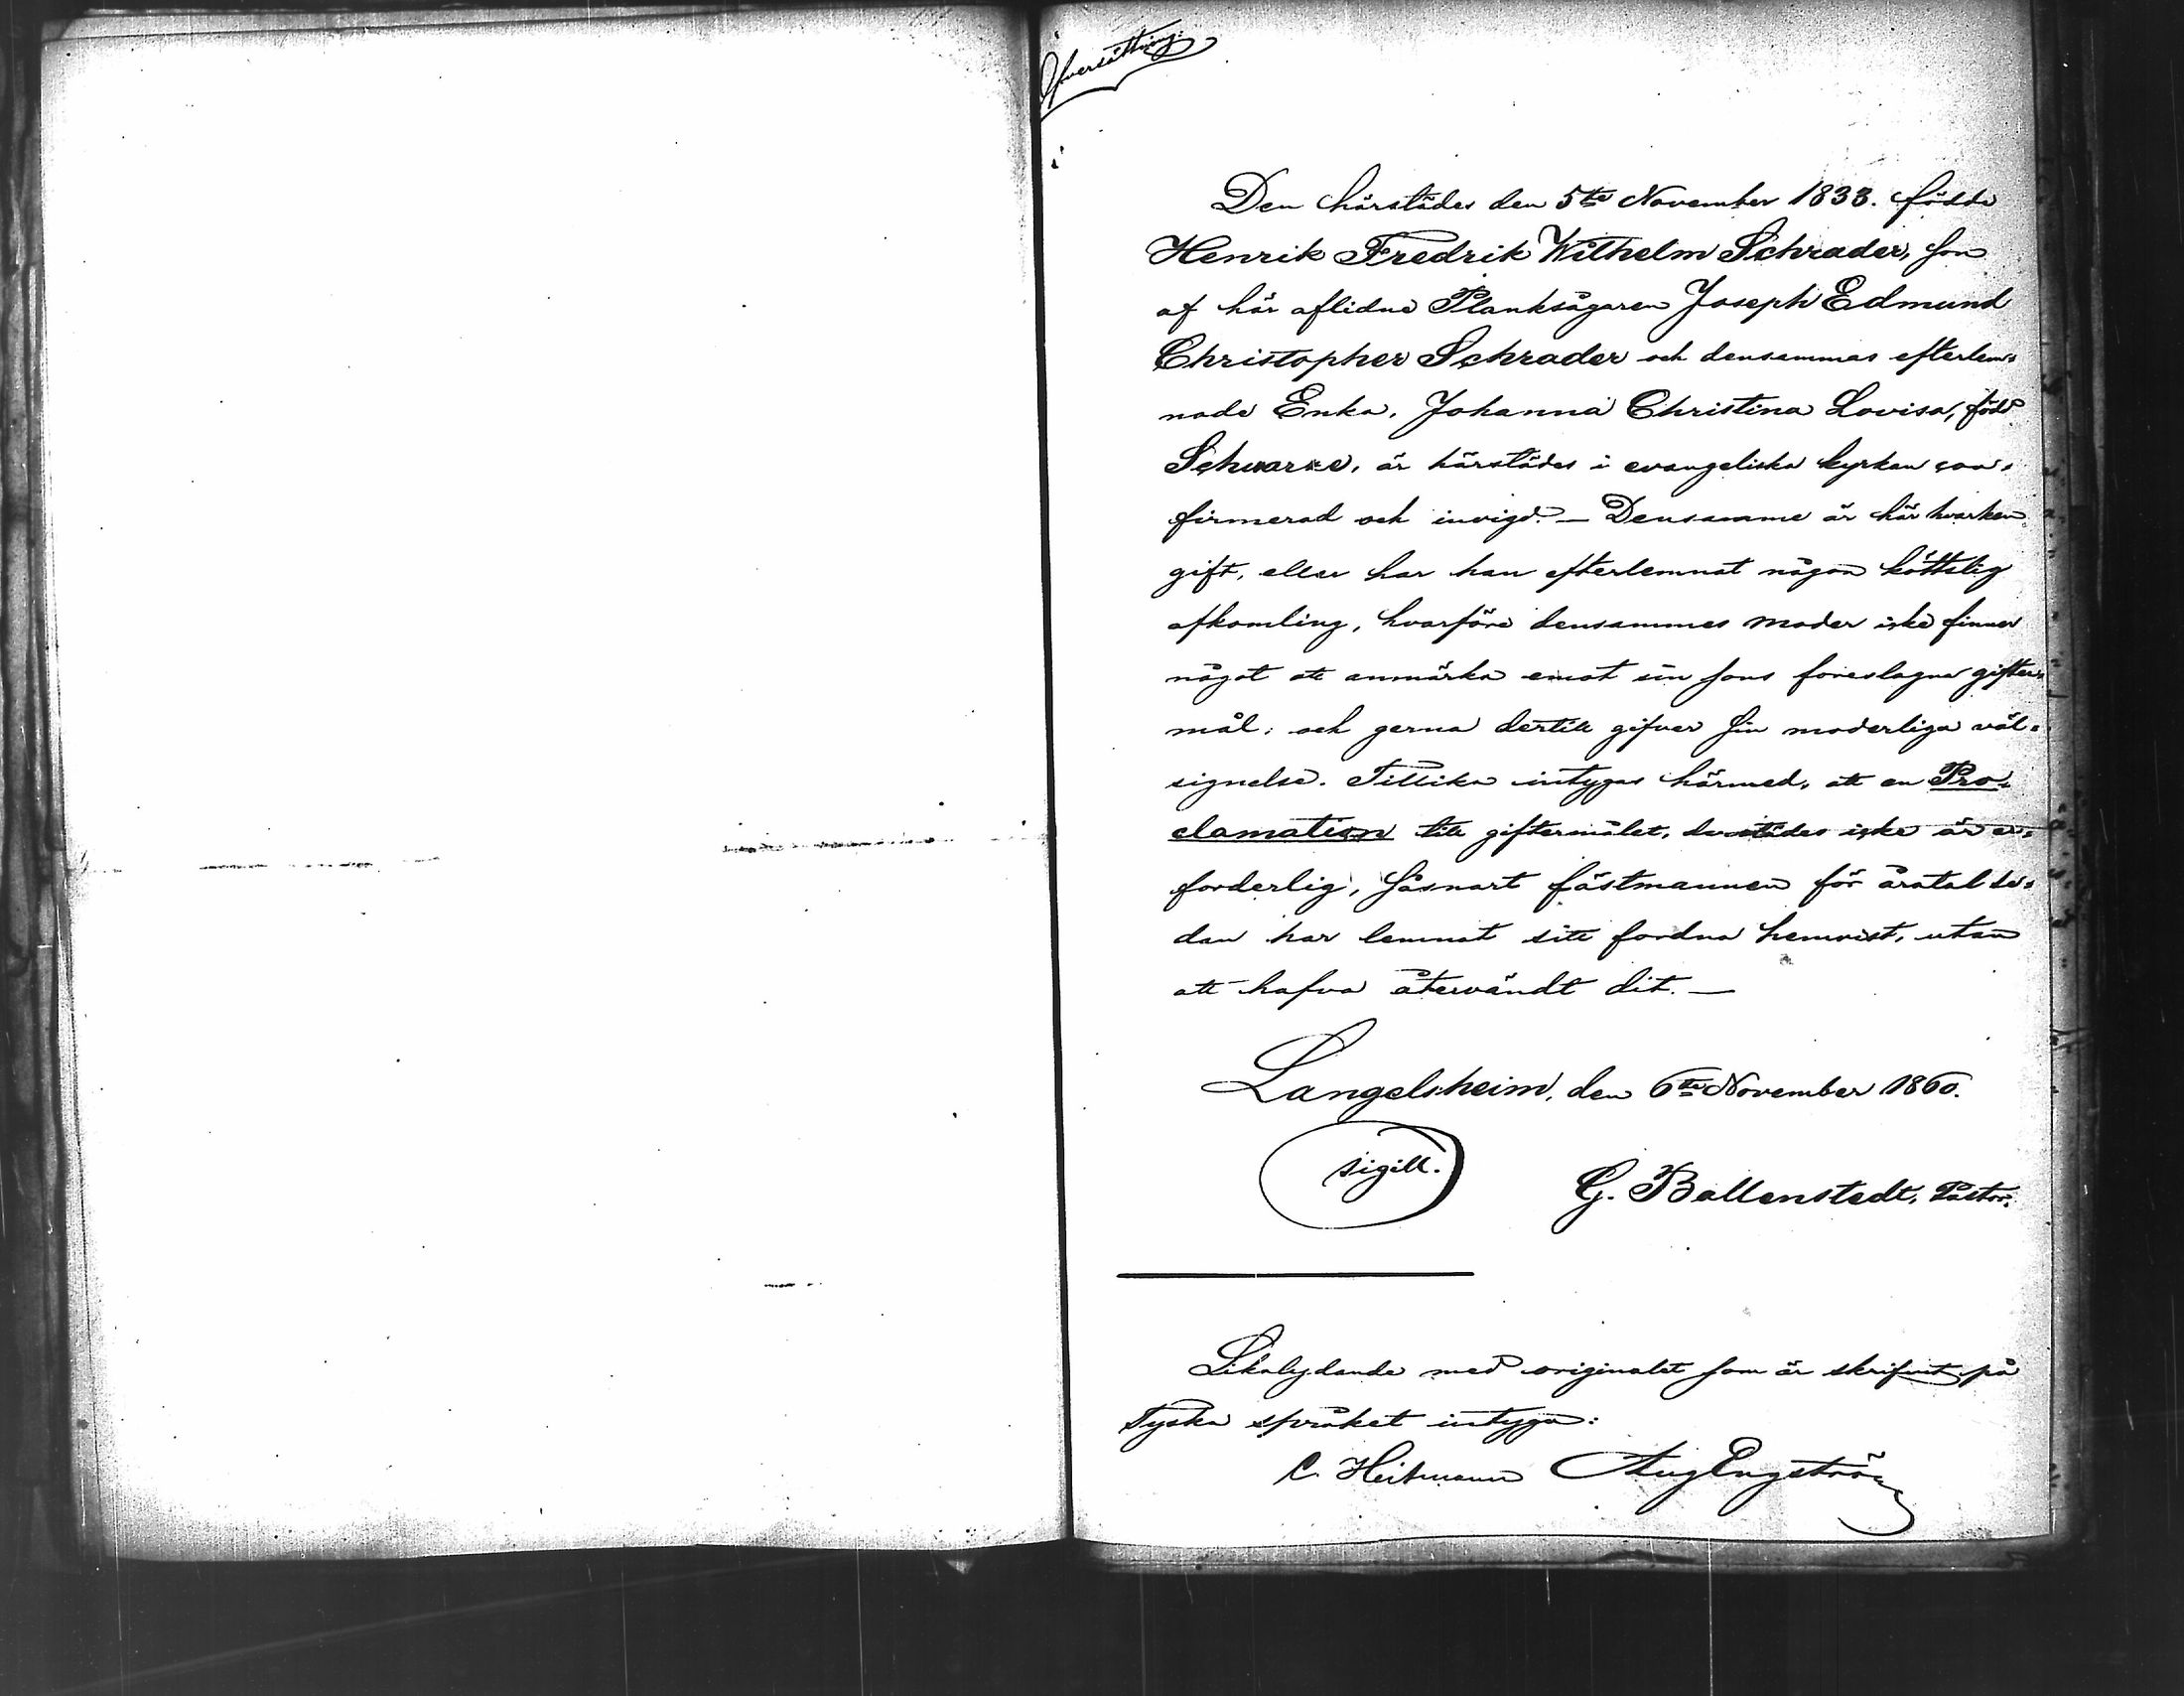 Öfversättning:
Den härstädes den 5te November 1833. födde
Henrik Fredrik Wilhelm Schrader, son
af här aflidne Planksågaren Joseph Edmund
Christopher Schrader och densammas efterlem-
nade Enka, Johanna Christina Lovisa, född
är härstädes i evangeliska kyrkan con-
firmerad och invigd. — Densamme är här hvarken
gift, eller har han efterlemnat någon köttslig
afkomling, hvarföre densammes moder icke finner
något att anmärka emot sin sons föreslagne gifter-
mål; och gerna dertill gifver sin moderliga väl-
signelse. Tillika intygas härmed, att en Pro-
clamation till giftermålet, derstädes icke är er-
forderlig, såsnart fästmannen för åratal se-
dan har lemnat sitt fordna hemvist, utan
att hafva återvändt dit. —
Langelsheim, den 6te November 1860.
Sigill.
G. Ballenstedt, Pastor.
Likalydande med originalet som är skrifvit på
Tyska språket intyga:
C. Heitmann Aug Engström